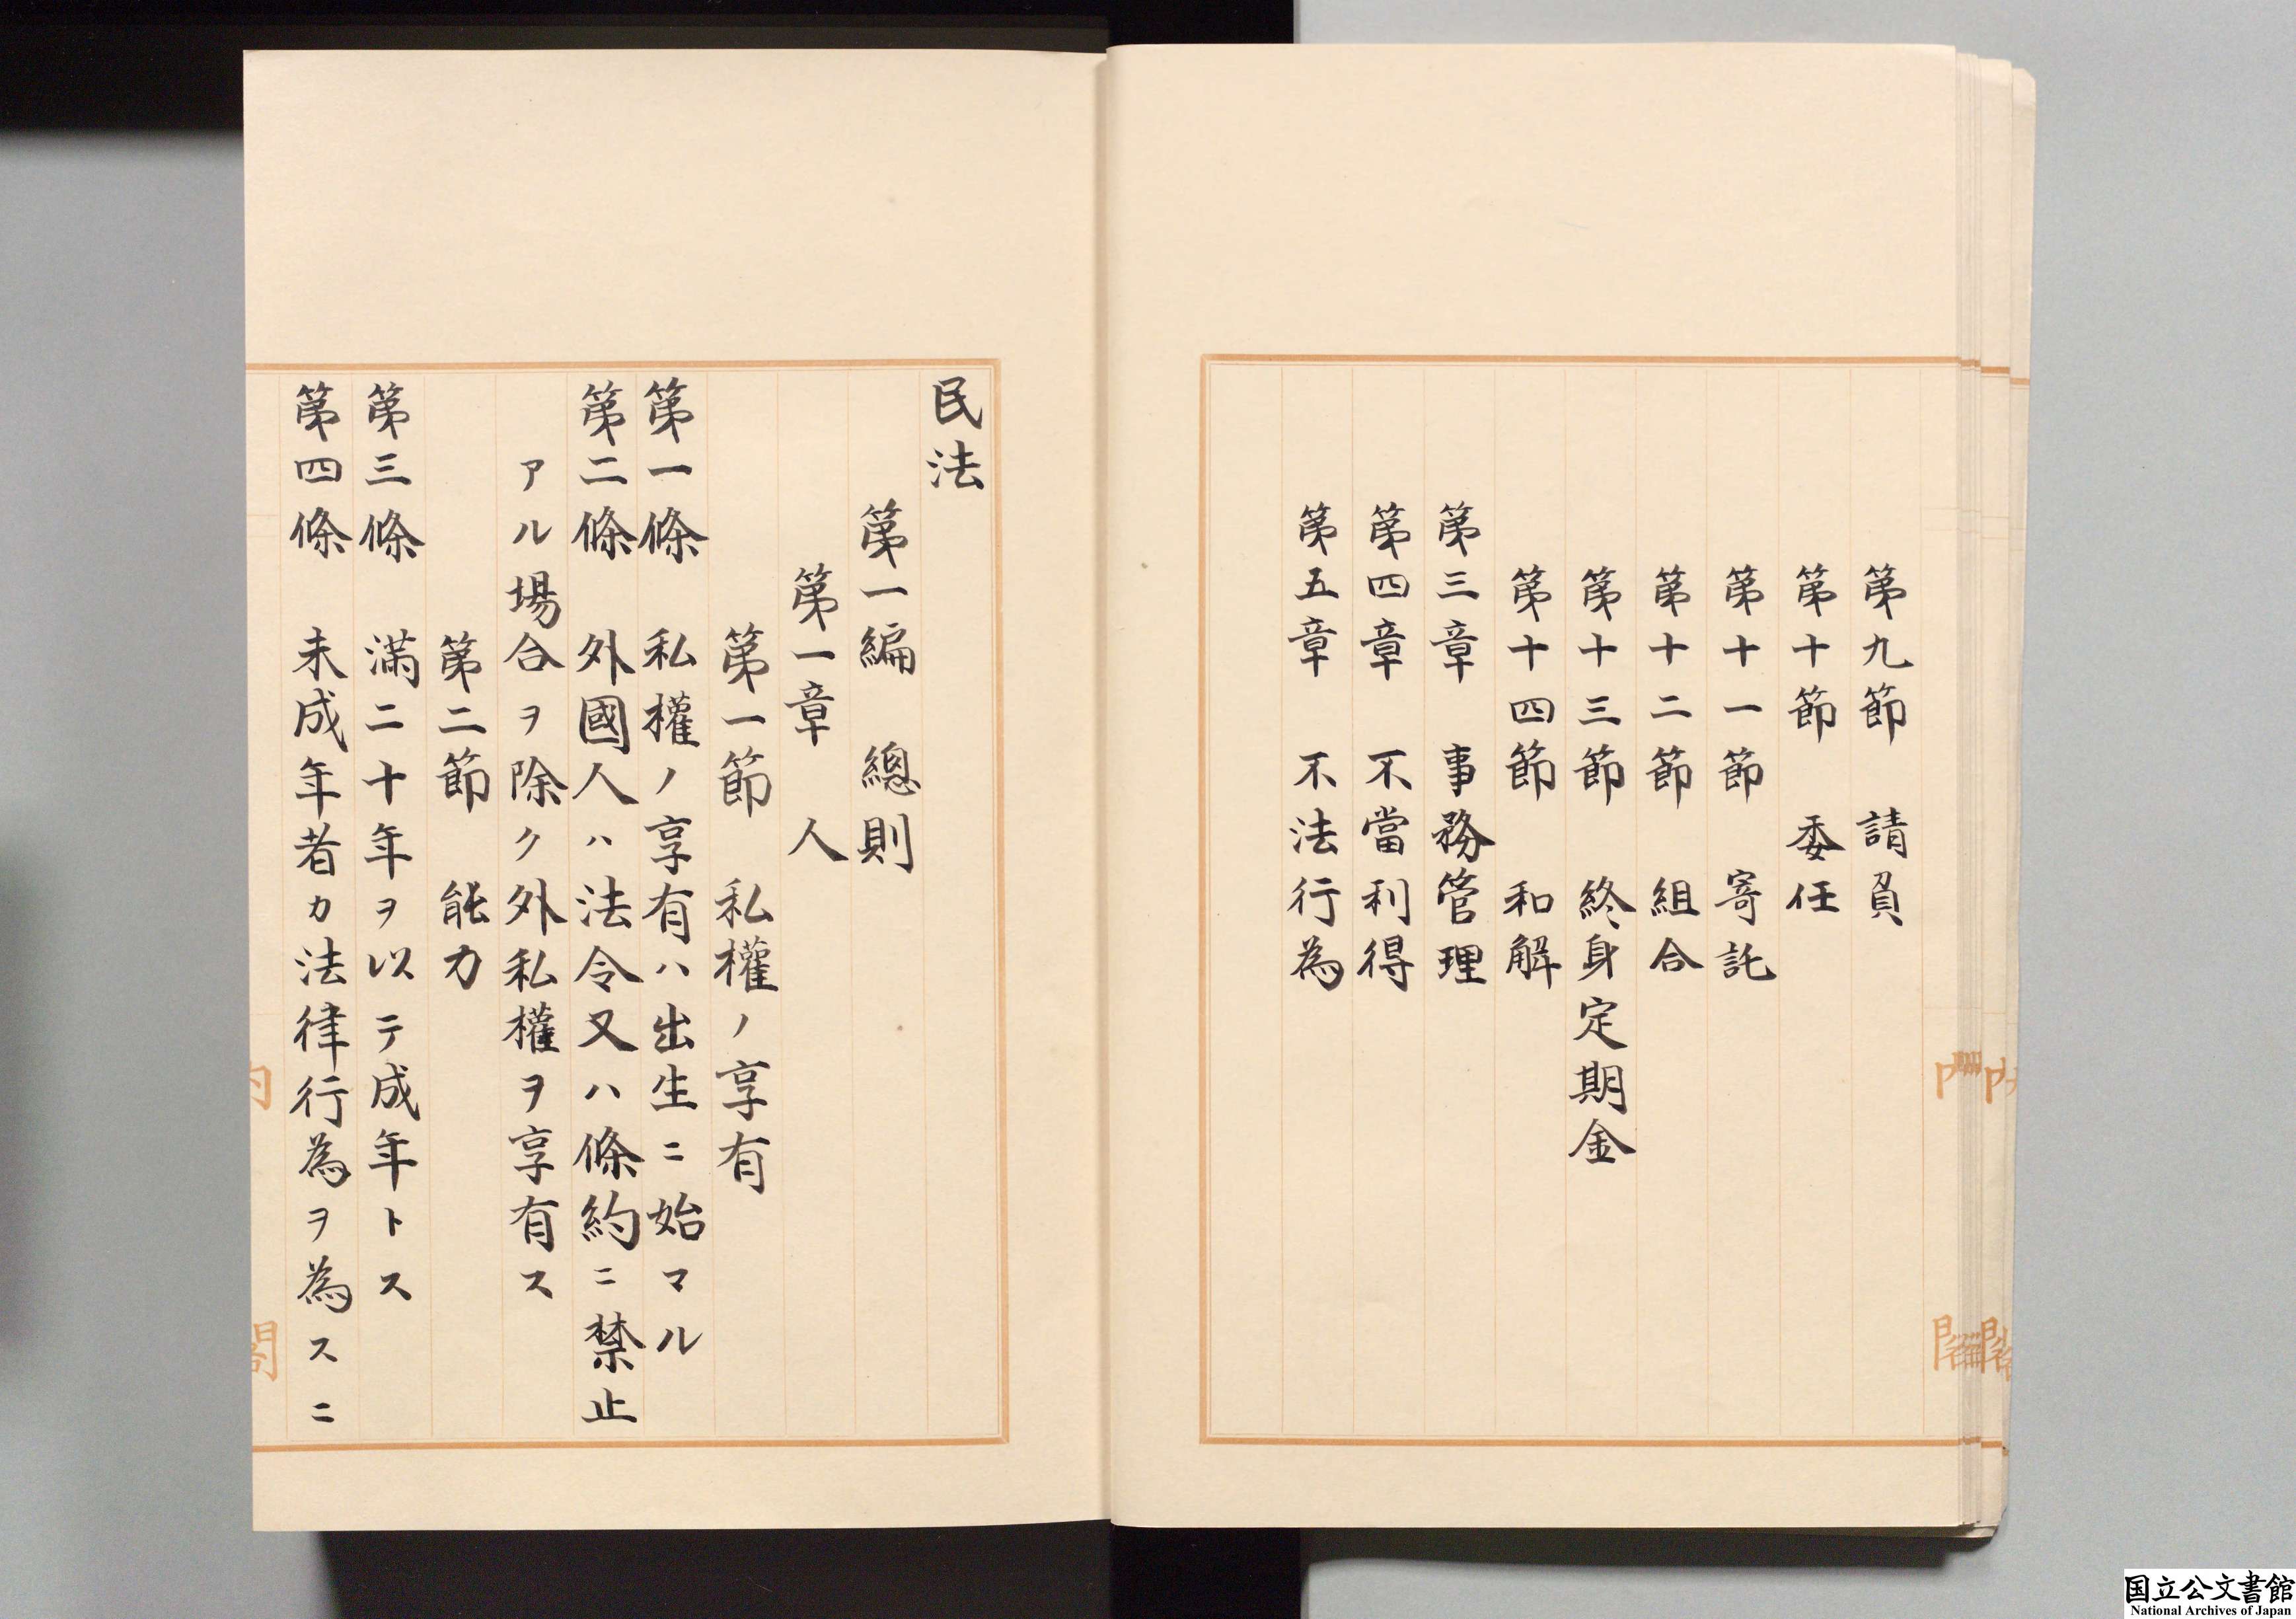 第九節　請負
第十節　委任
第十一節　寄託
第十二節　組合
第十三節　終身定期金
第十四節　和解
第三章　事務管理
第四章　不當利得
第五章　不法行為
民法
第一編　總則
第一章　人
第一節　私權ノ享有
第一條　私權ノ享有ハ出生ニ始マル
第二條　外國人ハ法令又ハ條約ニ禁止
アル場合ヲ除ク外私權ヲ享有ス
第二節　能力
第三條　滿二十年ヲ以テ成年トス
第四條　未成年者カ法律行為ヲ為スニ
内閣
国立公文書館
National Archives of Japan